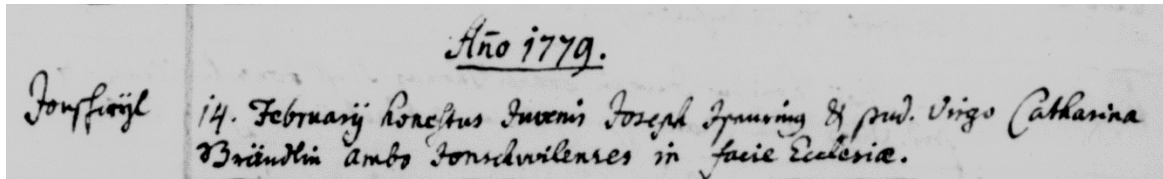 Año 1779.
Jonschwÿl
14. Februarÿ honestus Juvenis Joseph Isenring & pud. Virgo Catharina
Brändlin ambo Jonschwilenses in facie Ecclesiæ.